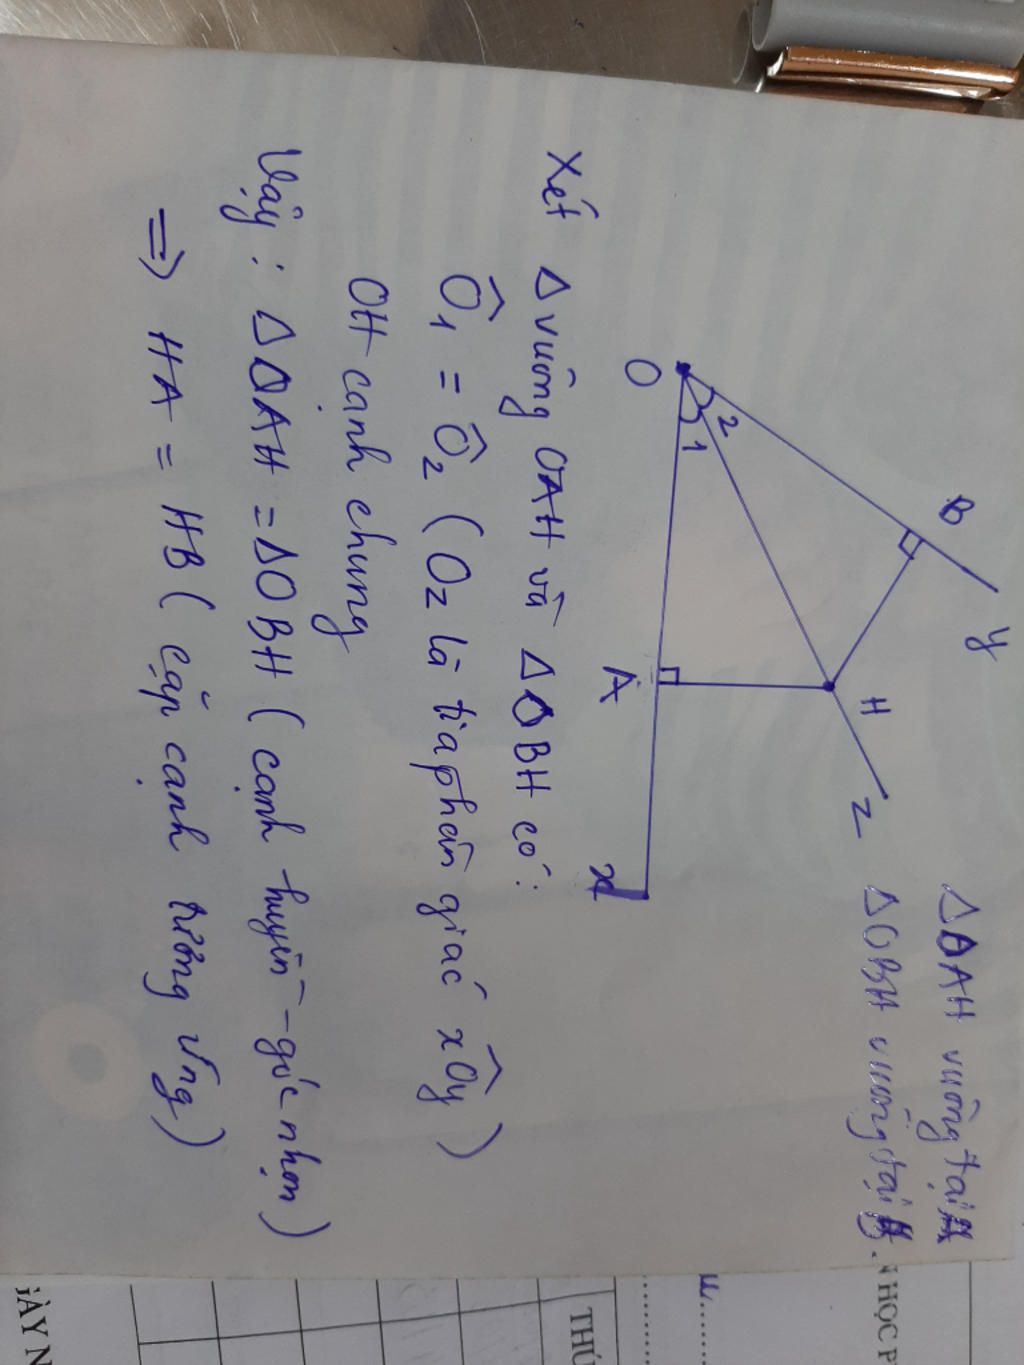 ΔOAH vuông tại A
ΔOBH vuông tại B.
y
B
H
z
2
1
O
A
x
Xét Δ vuông OAH và ΔOBH có:
Ô1 = Ô2 (Oz là tia phân giác xÔy)
OH cạnh chung
Vậy : ΔOAH = ΔOBH (cạnh huyền - góc nhọn)
=> HA = HB (cặp cạnh tương ứng)
N HỌC P
THÚ